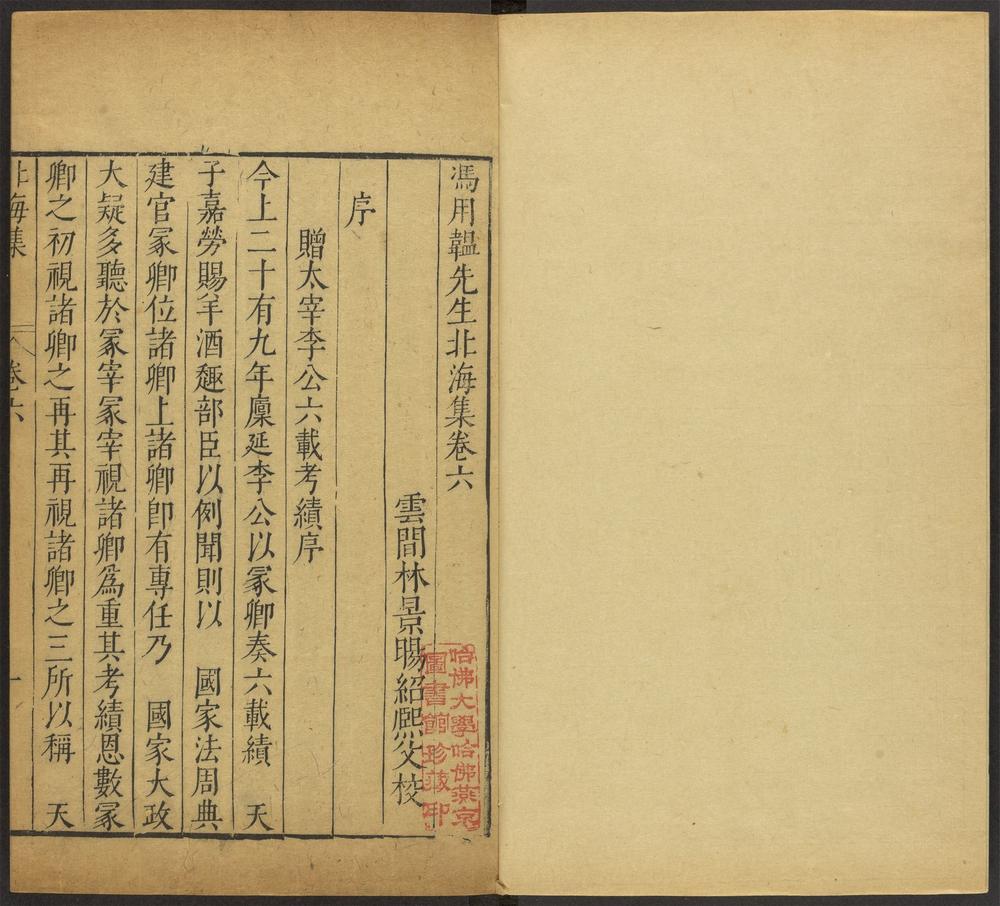 馮用韞先生北海集卷六
雲間林景暘紹熙父校
序
贈太宰李公六載考績序
今上二十有九年廩延李公以冢卿奏六載績　天
子嘉勞賜羊酒趣部臣以例聞則以　國家法周典
建官冢卿位諸卿上諸卿卽有專任乃　國家大政
大疑多聽於冢宰冢宰視諸卿爲重其考績恩數冢
卿之初視諸卿之再其再視諸卿之三所以稱　天
北海集　卷六　一
哈佛大學哈佛燕京
圖書館珍藏印